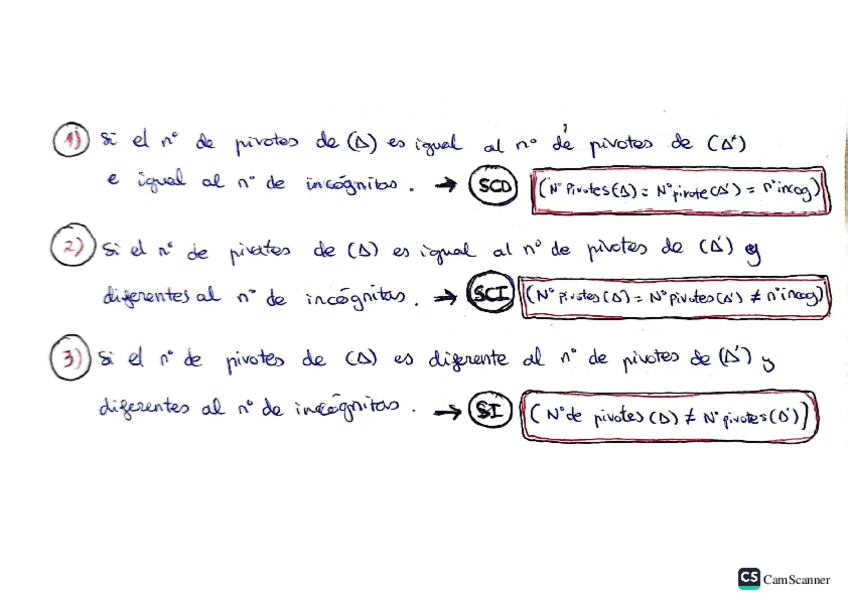 1) Si el nº de pivotes de (Δ) es igual al nº de pivotes de (Δ*)
e igual al nº de incógnitas. → SCD (Nº Pivotes (Δ) = Nº pivote (Δ') = nº incog)
2) Si el nº de pivotes de (Δ) es igual al nº de pivotes de (Δ') y
diferentes al nº de incógnitas. → SCI (Nº pivotes (Δ) = Nº Pivotes (Δ') ≠ nº incog)
3) Si el nº de pivotes de (Δ) es diferente al nº de pivotes de (Δ') y
diferentes al nº de incógnitas. → SI (Nº de pivotes (Δ) ≠ Nº pivotes (Δ'))
CS CamScanner